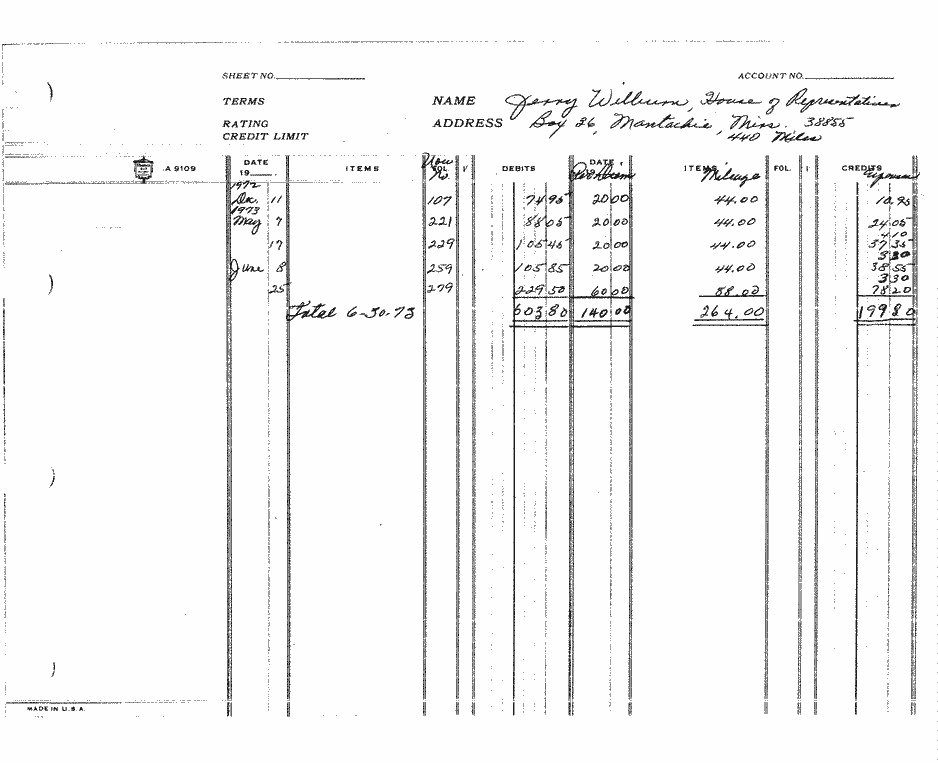 SHEET NO. ACCOUNT NO.
TERMS NAME Jerry Wilburn, House of Representatives
RATING ADDRESS Box 26, Mantachie, Miss. 38855
CREDIT LIMIT 440 Miles
A 9109 DATE 19 ITEMS FOL. Vou No. √ DEBITS DATE Per Diem ITEMS Mileage FOL. √ CREDITS Expenses
1972
Dec. 11 107 74 95 20 00 44.00 10.95
1973
May 7 221 88 05 20 00 44.00 24 05
4 10
17 229 105 45 20 00 44.00 37 35
3 30
June 8 259 105 85 20 00 44.00 38 55
3 30
25 279 229 50 60 00 88.00 78 20
Total 6-30-73 603 80 140 00 264.00 199 80
MADE IN U.S.A.